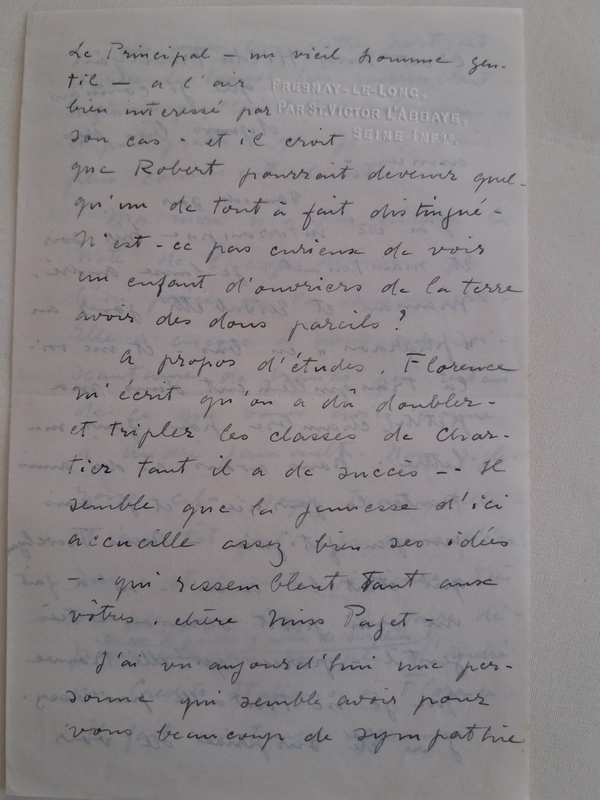 Le Principal – un vieil homme gen-
til — a l'air
FRESNAY-LE-LONG,
bien interessé par
PAR ST VICTOR L'ABBAYE,
son cas - et il croit
SEINE INFRE.
que Robert pourrait devenir quel-
qu'un de tout à fait distingué -
N'est-ce pas curieux de voir
un enfant d'ouvriers de la terre
avoir des dons pareils ?
A propos d'études, Florence
m'écrit qu'on a dû doubler -
et tripler les classes de Char-
tier tant il a de succès -- Il
semble que la jeunesse d'ici
accueille assez bien ses idées
-- qui ressemblent tant aux
vôtres, chère Miss Paget -
J'ai vu aujourd'hui une per-
sonne qui semble avoir pour
vous beaucoup de sympathie